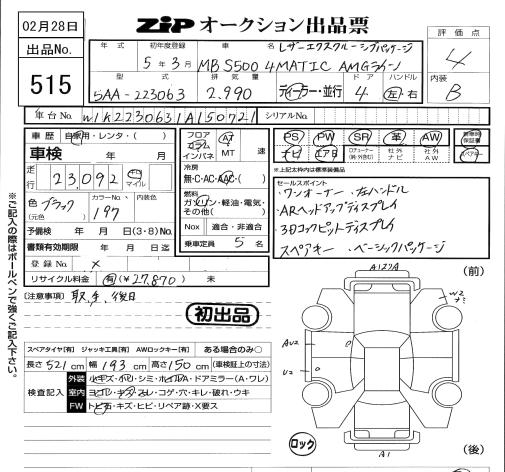 02月28日
ZIP オークション出品票
出品No.
515
評価点
4
内装
B
年式
初年度登録
車名
レザーエクスクルーシブパッケージ
5年3月
MB S500 4MATIC AMGライン
型式
排気量
ドア
ハンドル
5AA-223063
2.990
ディーラー・並行
4
左・右
車台No.
W1K2230631A150721
シリアルNo.
車歴
自家用・レンタ・( )
車検
年 月
走行
23,092
km
マイル
色
(元色)
ブラック
カラーNo.
197
予備検 年 月 日(3・8)No.
書類有効期限 年 月 日迄
登録No.
×
リサイクル料金
有(¥27,870)
未
フロア
コラム
インパネ
AT
MT
速
冷房
無・C・AC・AAC・( )
燃料
ガソリン・軽油・電気・
その他( )
Nox
適合・非適合
乗車定員
5
名
PS
PW
SR
革
AW
ナビ
エアB
社外
ナビ
社外
AW
スペアキー
※上記太枠内は標準装備品
セールスポイント
・ワンオーナー ・左ハンドル
・ARヘッドアップディスプレイ
・3Dコックピットディスプレイ
スペアキー ・ベーシックパッケージ
[注意事項] 取・本、後日
初出品
※ご記入の際はボールペンで強くご記入下さい。
スペアタイヤ[有] ジャッキ工具[有] AWロックキー[有] ある場合のみ○
長さ521cm 幅193cm 高さ150cm (車検証上の寸法)
検査記入
外装
小キズ・小リ・シミ・ホイルA・ドアミラー(A・ワレ)
室内
ヨゴレ・キズ・スレ・コゲ・穴・キレ・破れ・ウキ
FW
トビ石・キズ・ヒビ・リペア跡・X要ス
(前)
A1マA
W2
AU2
U2
ロック
A1
(後)